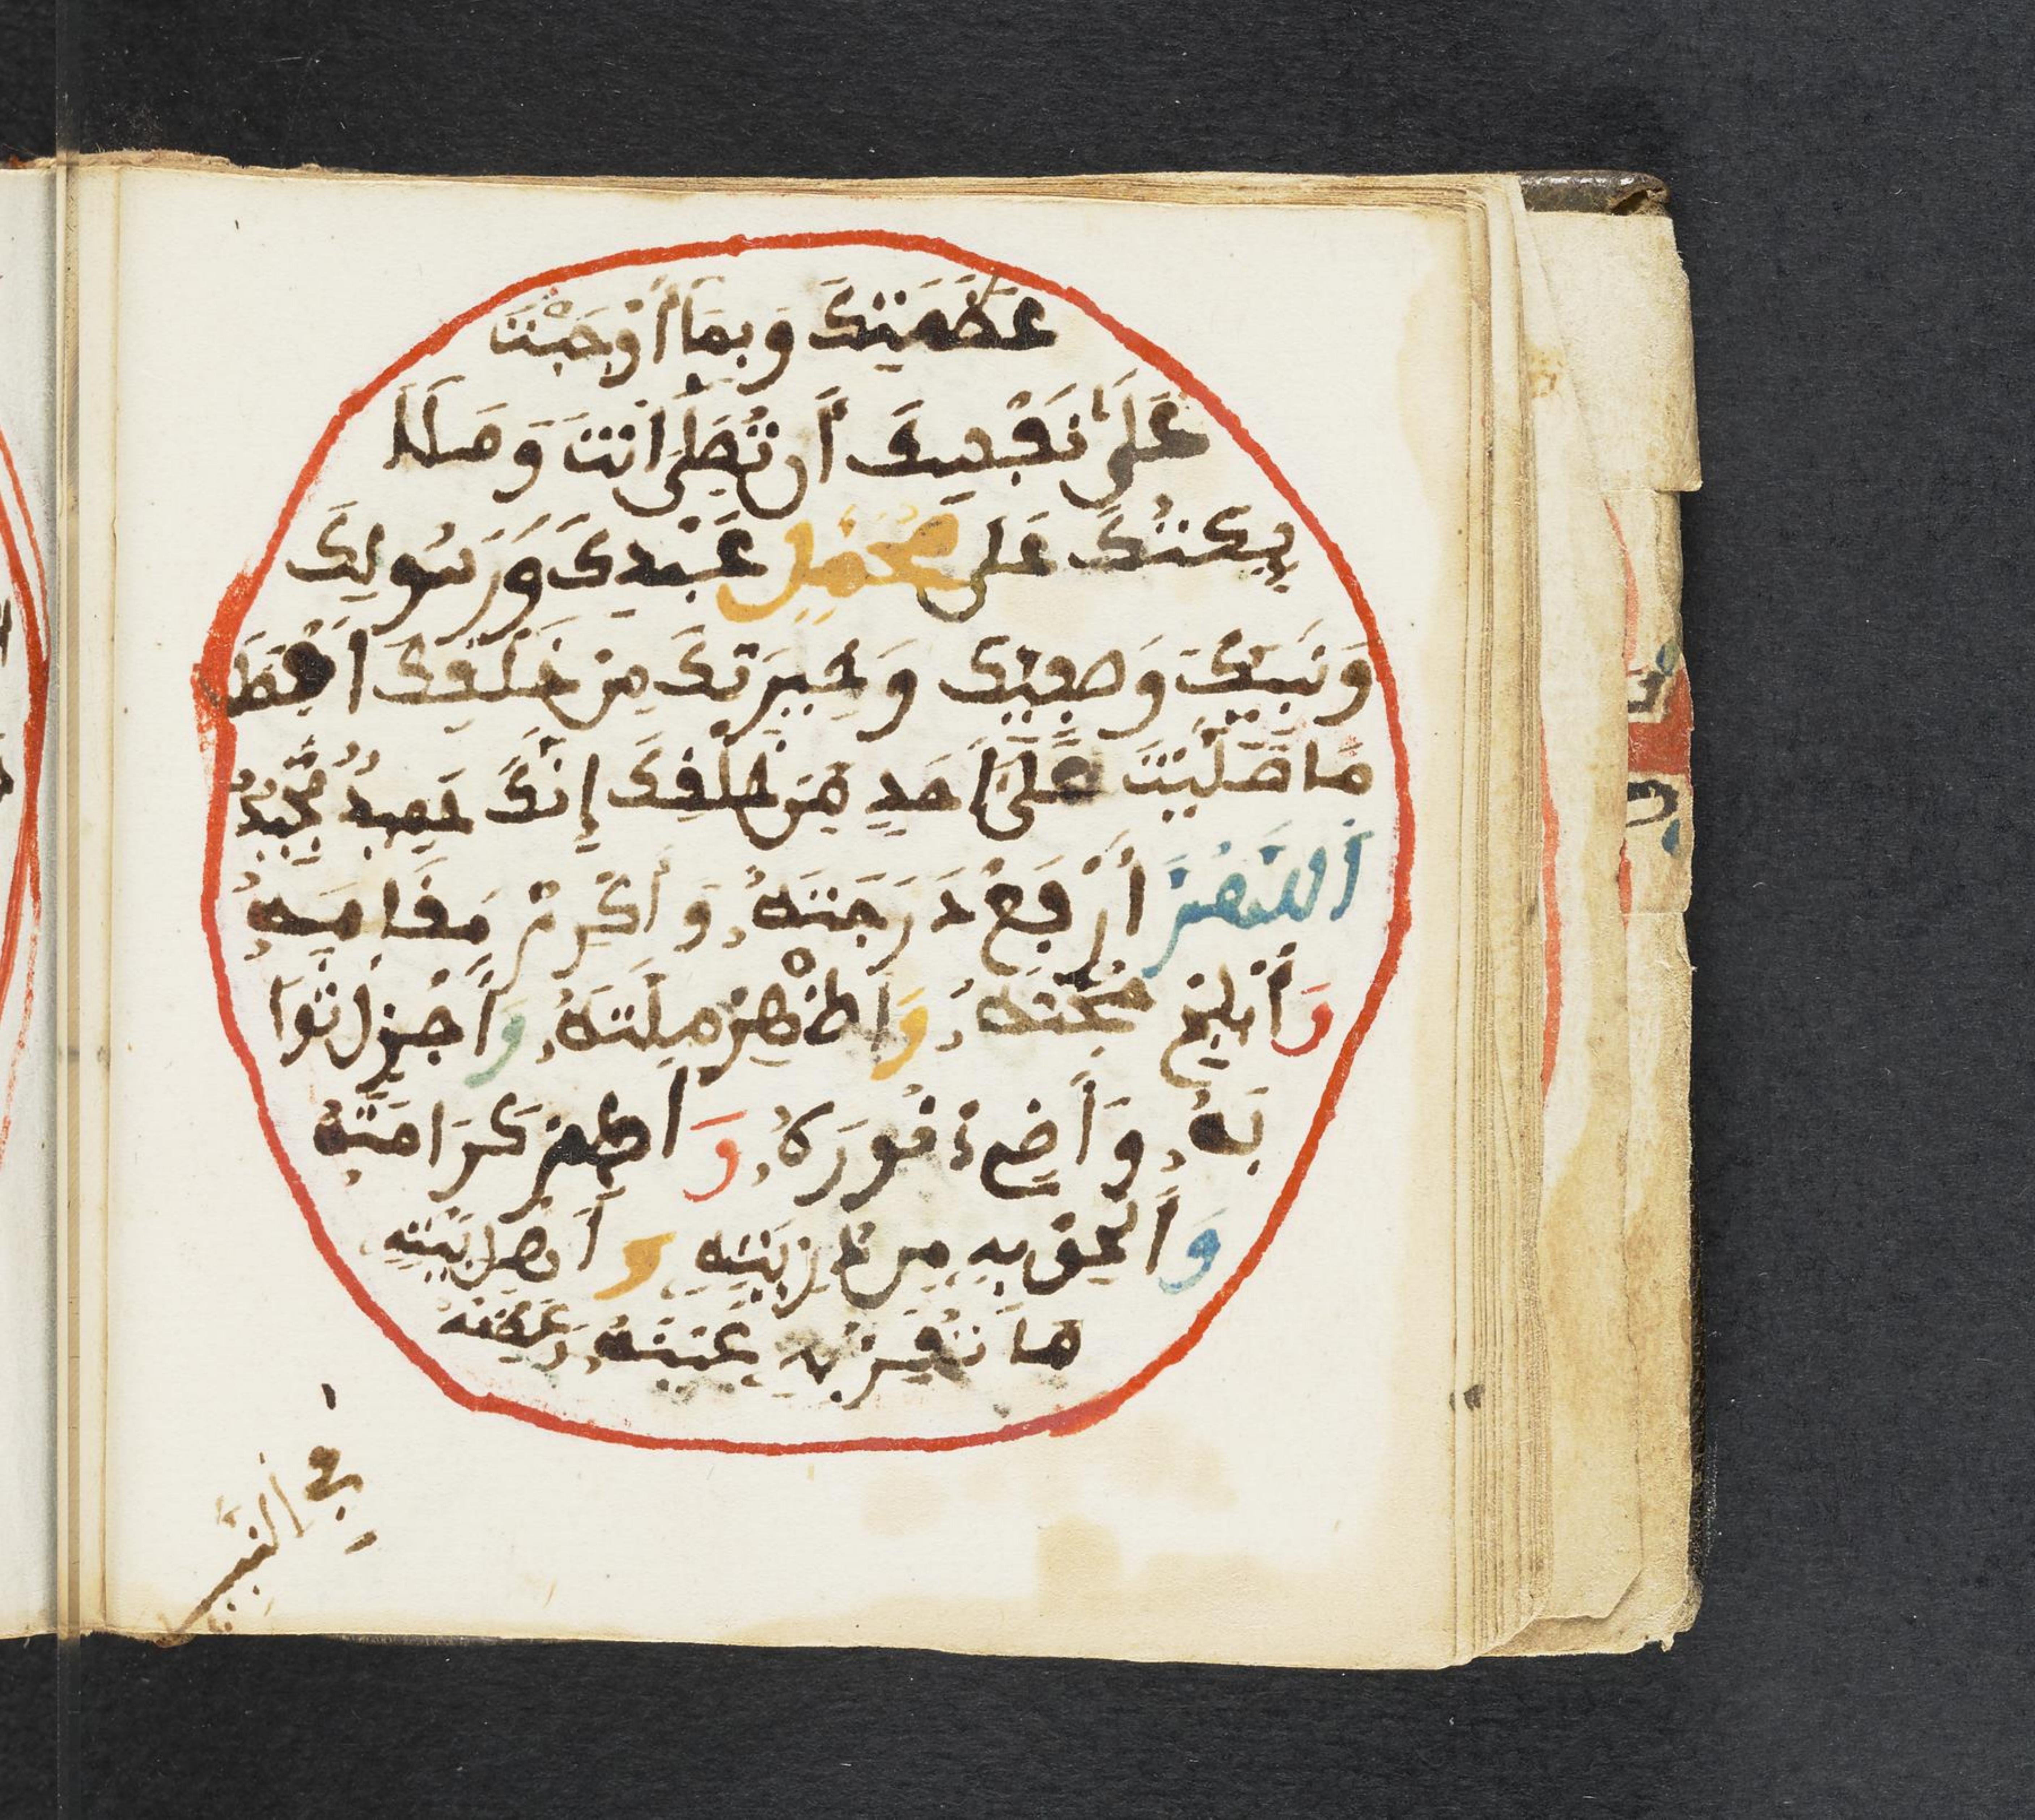 عَظَمَتِكَ وَبِمَا أَوْجَبْتَ
عَلَى نَفْسِكَ أَن تُصَلِّيَ انتَ وَمَلَا
يِكَتُكَ عَلَى مُحَمَّدٍ عَبْدِكَ وَرَسُولِكَ
وَنَبِيِّكَ وَصَفِيِّكَ وَخِيرَتِكَ مِنْ خَلْقِكَ اَفْضَلَ
مَا صَلَّيْتَ عَلَى اَحَدٍ مِنْ خَلْقِكَ إِنَّكَ حَمِيدٌ مَّجِيدٌ
اَللَّهُمَّ اَرْفَعْ دَرَجَتَهُ وَأَكْرِمْ مَقَامَهُ
وَأَبْلِجْ حُجَّتَهُ وَاَظْهِرْ مِلَّتَهُ وَاَجْزِلْ ثَوَا
بَهُ وَأَضِئْ نُورَهُ وَ كَرَامَتَهُ
وَأَلْحِقْ بِهِ مِن ذُرِّيَّتِهِ وَأَهْلِ بَيْتِهِ
مَا تَقِرُّ بِهِ عَيْنُهُ وَعَظِّمْهُ
فِي النَّبِيِّينَ